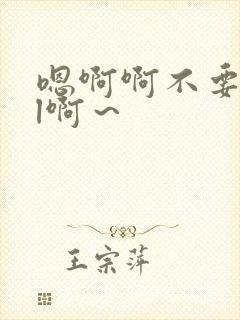 嗯啊啊不要
l啊~
王宗萍